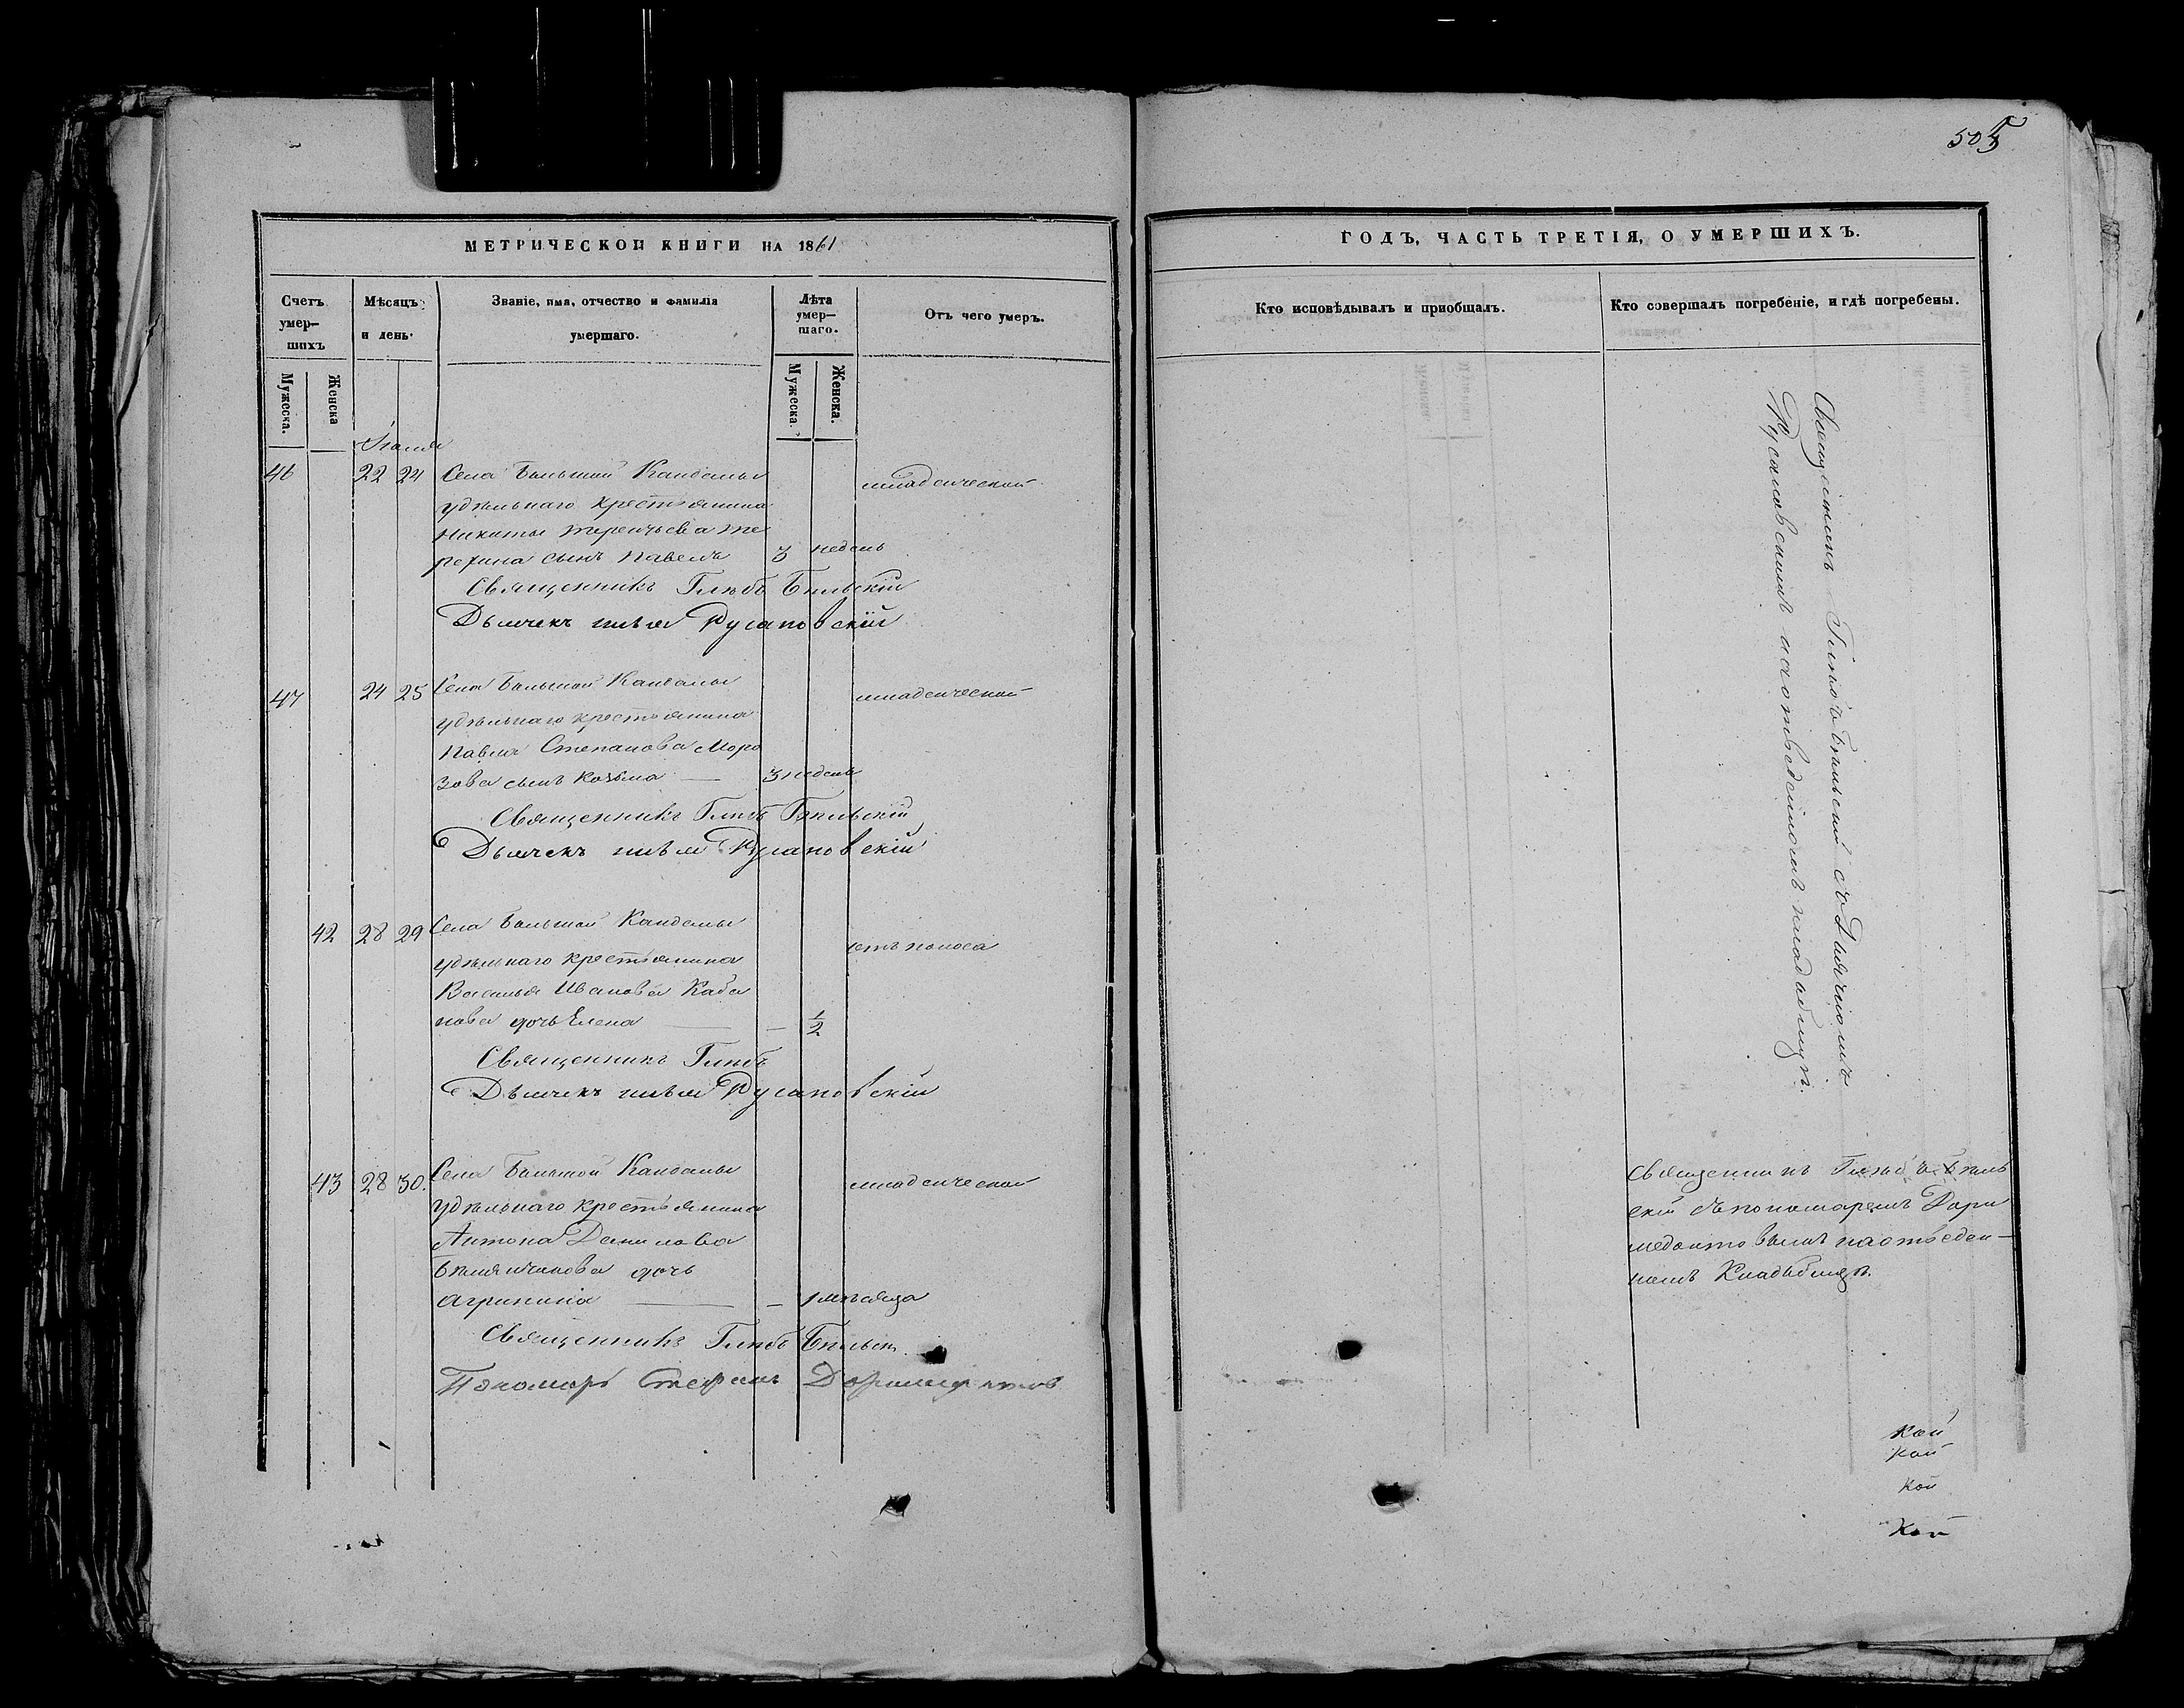 505
МЕТРИЧЕСКОЙ КНИГИ НА 1861
Счетъ умер-шихъ
Мѣсяцъ и день.
Званіе, имя, отчество и фамилія умершаго.
Лѣта умер-шаго.
Отъ чего умеръ.
Мужеска.
Женска
Мужеска.
Женска.
46 22 24 Села Большой Кандалы младенческой
удѣльнаго крестьянина
Никиты Терентьева Те
рехина сынъ Павелъ 3 недель
Священникъ Глѣбъ Бѣльскій
Дьячекъ Русановскій
47 24 25 Села Большой Кандалы младенческой
удѣльнаго крестьянина
Павла Степанова Моро
зова сынъ Козьма — 3 недель
Священникъ Глѣбъ Бѣльскій
Дьячекъ Русановскій
42 28 29 Села Большой Кандалы отъ поноса
удѣльнаго крестьянина
Василья Иванова Каба
нова дочь Елена — — 1/2
Священникъ Глѣбъ
Дьячекъ Русановскій
43 28 30. Села Большой Кандалы младенческой
удѣльнаго крестьянина
Антона Данилова
дочь
Агрипина — — 1 мѣсяца
Священникъ Глѣбъ Бѣльск
Пономарь Стефанъ Доримедонтовъ
ГОДЪ, ЧАСТЬ ТРЕТІЯ, О УМЕРШИХЪ.
Кто исповѣдывалъ и пріобщалъ.
Кто совершалъ погребеніе, и гдѣ погребены.
Священникъ Глѣбъ Бѣльскій съ Дьячкомъ
Русановскимъ на отведенномъ кладбищѣ.
Священникъ Глѣбъ Бѣль
скій съ пономаремъ Дори
медонтовымъ на отведен-
номъ Кладбищѣ.
кой
кой
кой
кой